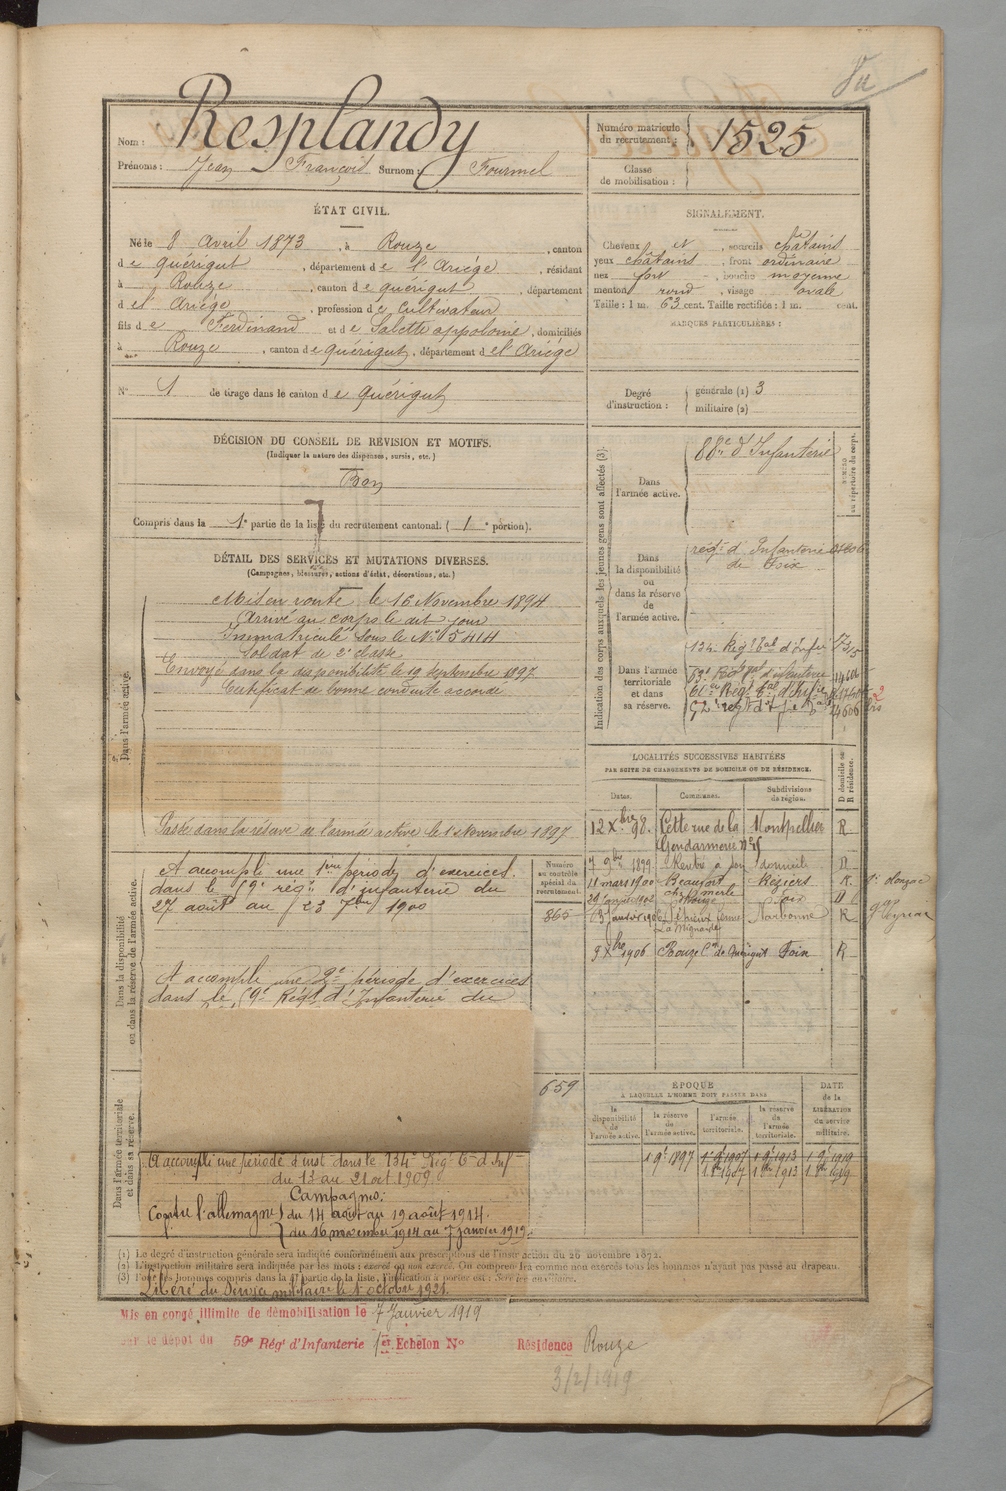 Vu
Nom : Resplandy
Prénoms : Jean François Surnom : Fourmel
Numéro matricule du recrutement : 1525
Classe de mobilisation :
ÉTAT CIVIL.
Né le 8 Avril 1873, à Rouze, canton
de Quérigut, département de l'Ariége, résidant
à Rouze, canton de Quérigut, département
de l'Ariége, profession de Cultivateur
fils de Ferdinand et de Salette appolonie, domiciliés
à Rouze, canton de Quérigut, département de l'Ariége
N° 1 de tirage dans le canton de Quérigut
SIGNALEMENT.
Cheveux et, sourcils châtains
yeux châtains, front ordinaire
nez fort, bouche moyenne
menton rond, visage ovale
Taille : 1 m. 63 cent. Taille rectifiée : 1 m. cent.
MARQUES PARTICULIÈRES :
Degré d'instruction : générale (1) 3
militaire (2)
DÉCISION DU CONSEIL DE REVISION ET MOTIFS.
(Indiquer la nature des dispenses, sursis, etc.)
Bon
Compris dans la 1e partie de la liste du recrutement cantonal (1e portion).
DÉTAIL DES SERVICES ET MUTATIONS DIVERSES.
(Campagnes, blessures, actions d'éclat, décorations, etc.)
Dans l'armée active.
Mis en route le 16 Novembre 1894
Arrivé au corps le dit jour
Immatriculé sous le N° 5414
Soldat de 2e classe
Envoyé dans la disponibilité le 19 Septembre 1897
Certificat de bonne conduite accordé
Passé dans la réserve de l'armée active le 1 Novembre 1897
Indication des corps auxquels les jeunes gens sont affectés (3).
NUMÉRO au répertoire du corps.
Dans l'armée active.
88e d'Infanterie
Dans la disponibilité ou dans la réserve de l'armée active.
régt d'Infanterie
de Foix
Dans l'armée territoriale et dans sa réserve.
134e Régt Tal d'Infie
59e Régt d'infanterie
LOCALITÉS SUCCESSIVES HABITÉES
PAR SUITE DE CHANGEMENTS DE DOMICILE OU DE RÉSIDENCE.
Dates. Communes. Subdivisions de région. D domicile ou R résidence.
12 Xbre 98. Cette rue de la Gendarmerie Montpellier R
7 9bre 1899 Rentré à son domicile D
11 mars 1900 Beaufort Béziers R
Rouze Foix D
Narbonne R
9 Xbre 1906 Rouze Con de Quérigut Foix R
Dans la disponibilité ou dans la réserve de l'armée active.
Numéro au contrôle spécial du recrutement.
A accompli une 1ère période d'exercices
dans le 59e régt d'infanterie du
27 août au 23 7bre 1900
865
A accompli une 2e période d'exercices
dans le 59e Régt d'Infanterie du
659
Dans l'armée territoriale et dans sa réserve.
A accompli une période d'inst dans le 134e Régt Tal d'Inf
du 13 au 21 oct 1909
Campagnes:
Contre l'allemagne du 14 août au 19 août 1914.
du 16 novembre 1914 au 7 janvier 1919.
ÉPOQUE
À LAQUELLE L'HOMME DOIT PASSER DANS
la disponibilité de l'armée active. la réserve de l'armée active. l'armée territoriale. la réserve de l'armée territoriale.
DATE de la LIBÉRATION du service militaire.
1 9bre 1897 1er 9bre 1907 1 9bre 1913 1 9bre 1919
(1) Le degré d'instruction générale sera indiqué conformément aux prescriptions de l'instruction du 26 novembre 1872.
(2) L'instruction militaire sera indiquée par les mots : exercé ou non exercé. On comprendra comme non exercés tous les hommes n'ayant pas passé au drapeau.
(3) Pour les hommes compris dans la 1re partie de la liste, l'indication à porter est : Service auxiliaire.
Libéré du Service militaire le 1 octobre 1921.
Mis en congé illimité de démobilisation le 7 Janvier 1919
par le dépôt du 59e Régt d'Infanterie 1er Échelon No Résidence Rouze
3/2/1919